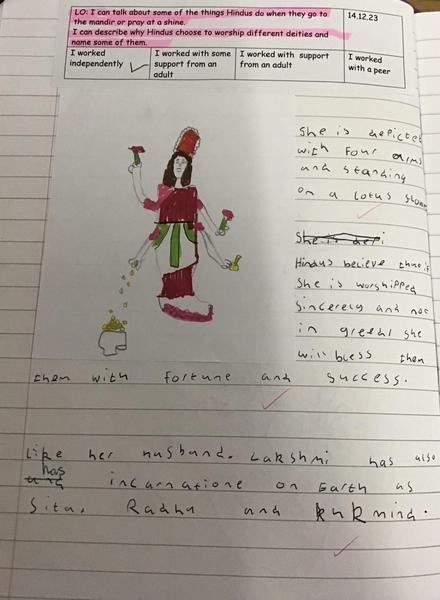 LO: I can talk about some of the things Hindus do when they go to
the mandir or pray at a shine.
I can describe why Hindus choose to worship different deities and
name some of them.
14.12.23
I worked
independently
I worked with some
support from an
adult
I worked with support
from an adult
I worked
with a peer
She is depicted
with four arms
and standing
on a lotus
She is
Hindus believe if
She is worshipped
Sincerely and not
in greed she
will bless then
them with fortune and success.
Like her husband. Lakshmi has also
has
and incarnatione on Earth as
Sita, Radha and